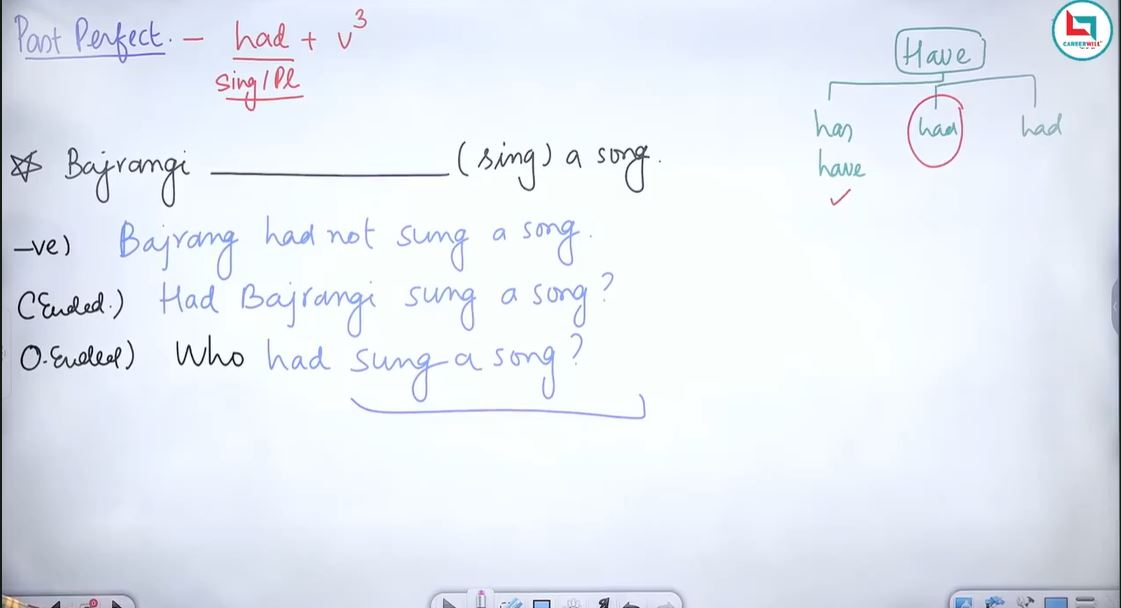 Past Perfect. - had + v³
Sing/Pl
Have
has had had
have
Bajrangi __________ (sing) a song.
-ve) Bajrang had not sung a song.
(C Ended.) Had Bajrangi sung a song?
O. Ended) Who had sung a song?
CAREERWILL